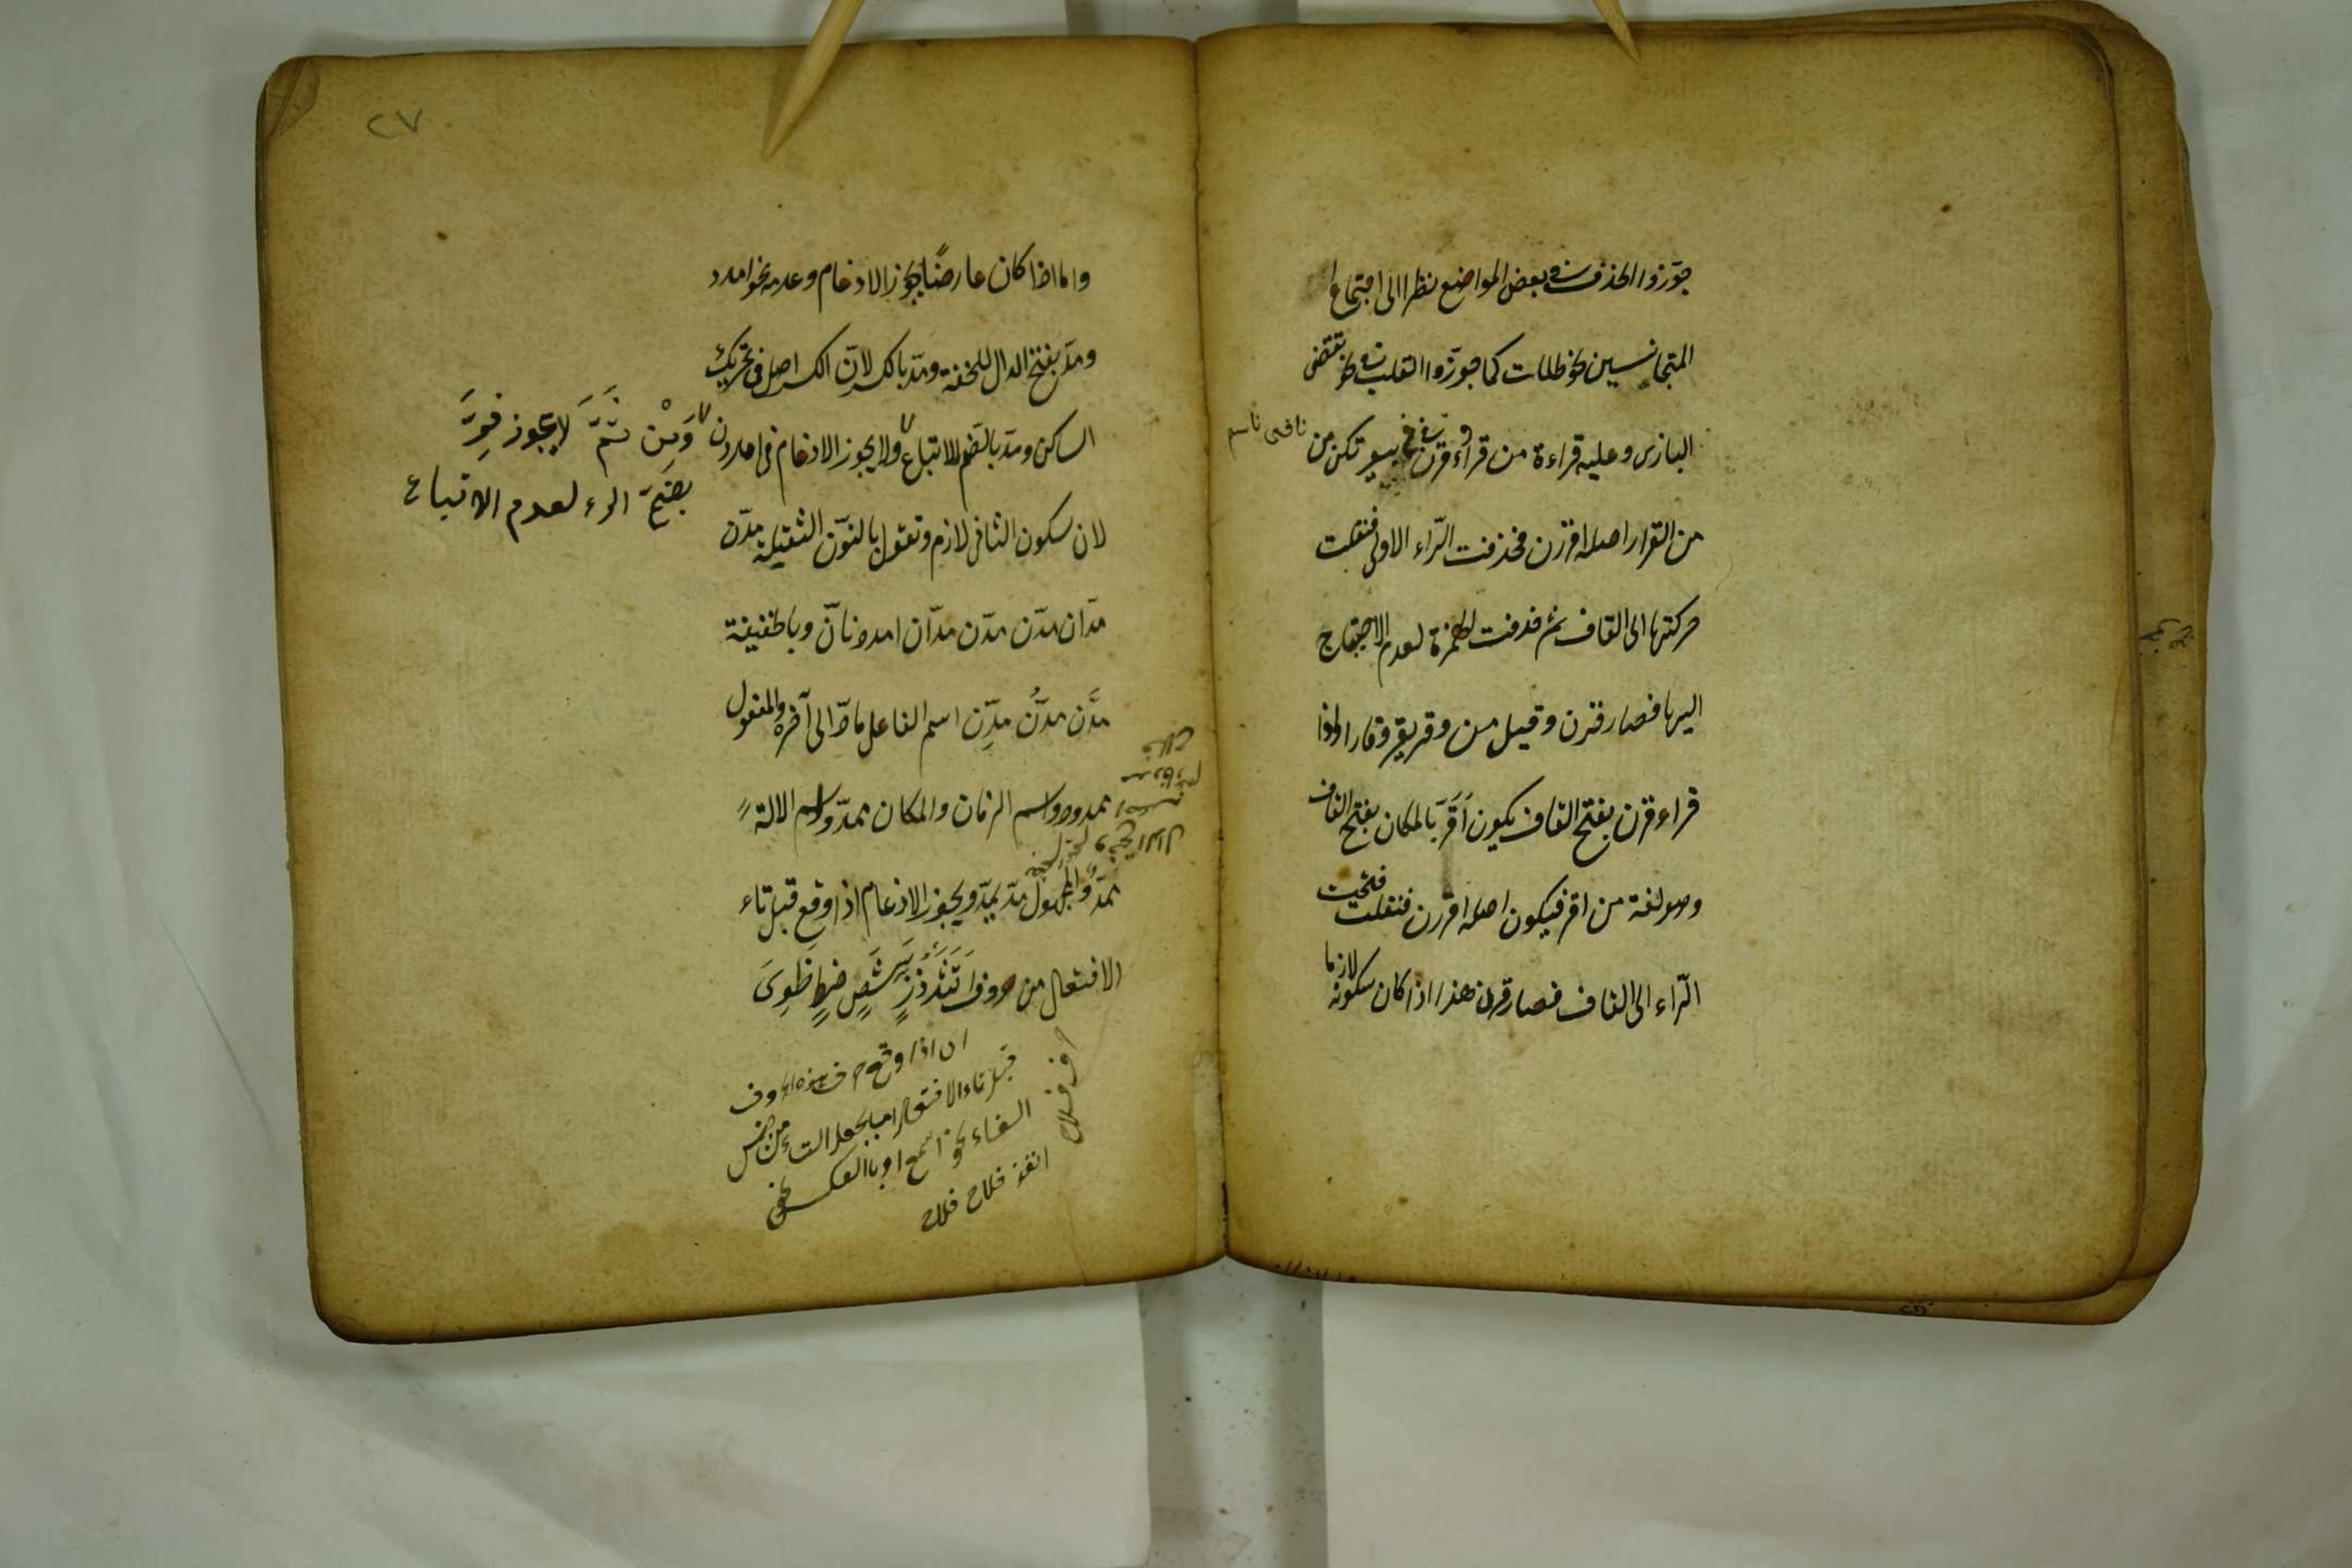 جوّزوا الحذف في بعض المواضع نظرا الى اجتماع
المتجانسين نحو ظلت كما جوّزوا القلب في نحو تقضى
البازى وعليه قراءة من قراء وقرن في بيوتكن من
من القرار اصله اقررن فحذفت الرّاء الاولى فنقلت
حركتها الى القاف ثم حذفت الهمزة لعدم الاحتياج
اليها فصار قرن وقيل من وقر يقر وقارا واذا
قراء قرن بفتح القاف يكون اَقَرَّ بالمكان بفتح القاف
وهو لغة من اقر فيكون اصله اقررن فنقلت فتحت
الرّاء الى القاف فصار قرن هذا اذا كان سكونه لازما
٢٧
واما اذا كان عارضًا يجوز الادغام وعدمه نحو امدد
ومدّ بفتح الدال للخفة ومدّ بالكسر لانّ الكسر اصل فى تحريك
الساكن ومدّ بالضم للاتباع ولا يجوز الادغام فى امددن
وَمِنْ ثَمَّ لا يجوز فِرَّ
بضمّ الراء لعدم الاتباع
لان سكون الثانى لازم وتقول بالنوّن الثقيلة مدّن
مدّان مدّن مدّن مدّان امددنانّ وبالخفيفة
مدَّن مدُّن مدِّن اسم الفاعل مادّ الى آخره والمفعول
ممدود واسم الزمان والمكان ممدّ واسم الالة
ممدّ والمجهول مدّ يمدّ ويجوز الادغام اذا وقع قبل تاء
الافتعال من حروف اَتَثَدَذَزٍ سَشَصٍ ضٍطٍ ظَوِىَ
اى اذا وقع حرف من هذه الحروف
قبل تاء الافتعال اما بجعل التاء من جنس
الفاء نحو اسّمع او بالعكس نحو
اتقد فلاح فلاح